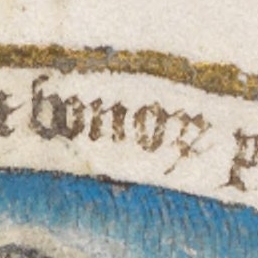 bonoꝝ p